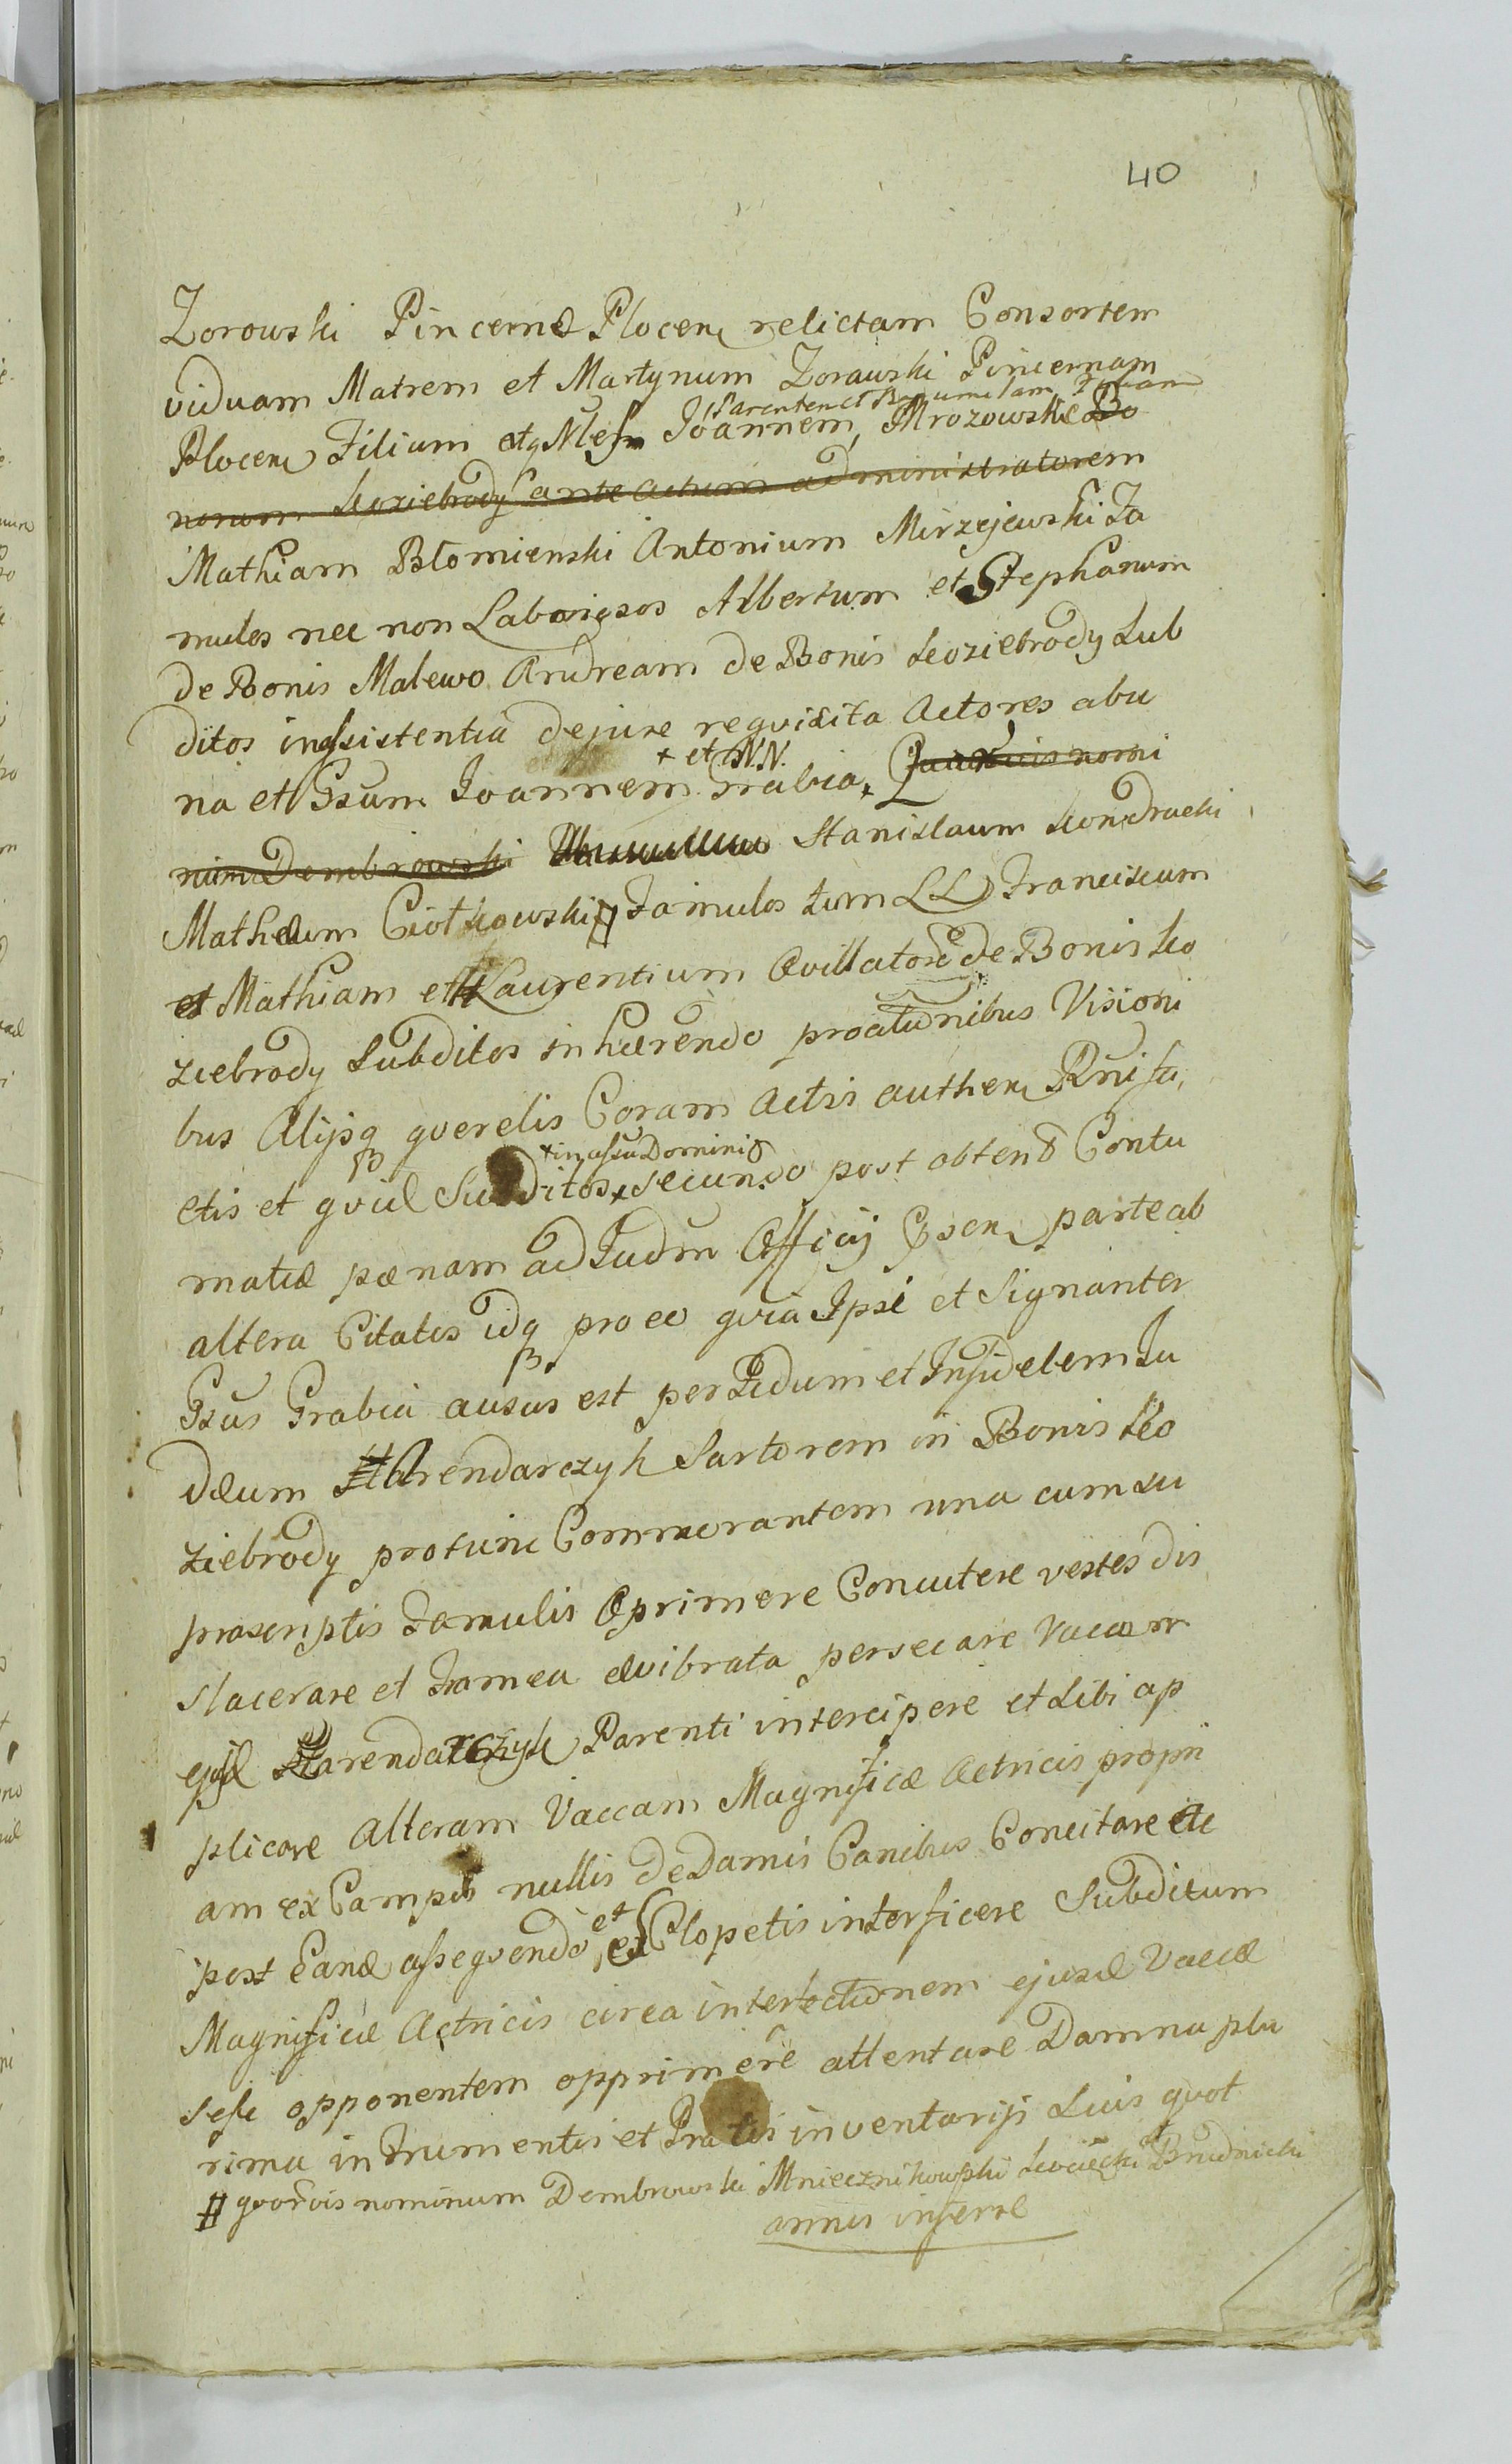 40
Zorowski Pincernæ Plocen relictam Consortem
viduam Matrem et Martynum Zorawski Pincernam
Parentem et
Plocen Filium atq Nles Joannem, Mrozowski Bo
norum Koziebrody ante actum administratorem
Mathiam Błomienski Antonium Mirzejewski Fa
mulos nec non Laboriosos Albertum et Stephanum
de Bonis Malewo Andream de Bonis Koziebrody Sub
ditos in assistentia de jure requisita Actores abu
+ et NN.
na et Gsum Joannem Grabia + nomi
num Dembrowski Stanislaum Kondracki
Mathæum Ciotkowski # Famulos tum LL Franciscum
et Mathiam et Laurentium Avillatore de Bonis Ko
ziebrody Subditos inhærendo proationibus Visioni
bus Alijsq querelis Coram Actis authen Rni fa
+ in assu Domini
ctis et quid Subditos + secundo post obten Contu
matiæ pænam ad Iudm Officij Gsen parte ab
altera Citatis idq pro eo quia Ipsi et Signanter
Gsus Grabia ausus est perfidum et Infidelem Iu
dæum Arendarczyk Sartorem in Bonis Ko
ziebrody protunc Commorantem una cum su
prascriptis Famulis Oprimere Concutere vestes di
slacerare et Framea evibrata persecare Vacam
ejusd Arendarczyk Parenti intercipere et Sibi ap
plicare Alteram Vaccam Magnificæ Actricis propri
am ex Campis nullis de Damis Canibus Concitare ac
et
post Eand assequendo ex Sclopetis interficere Subditum
Magnificæ Actricis circa interfectionem ejusd Vaccæ
sese opponentem opprimere attentare Damna plu
rima in Frumentis et Pratis inventarijs Suis quot
# quorvis nominum Dembrowski Mniecznikowski et Brudnicki
annis inferre